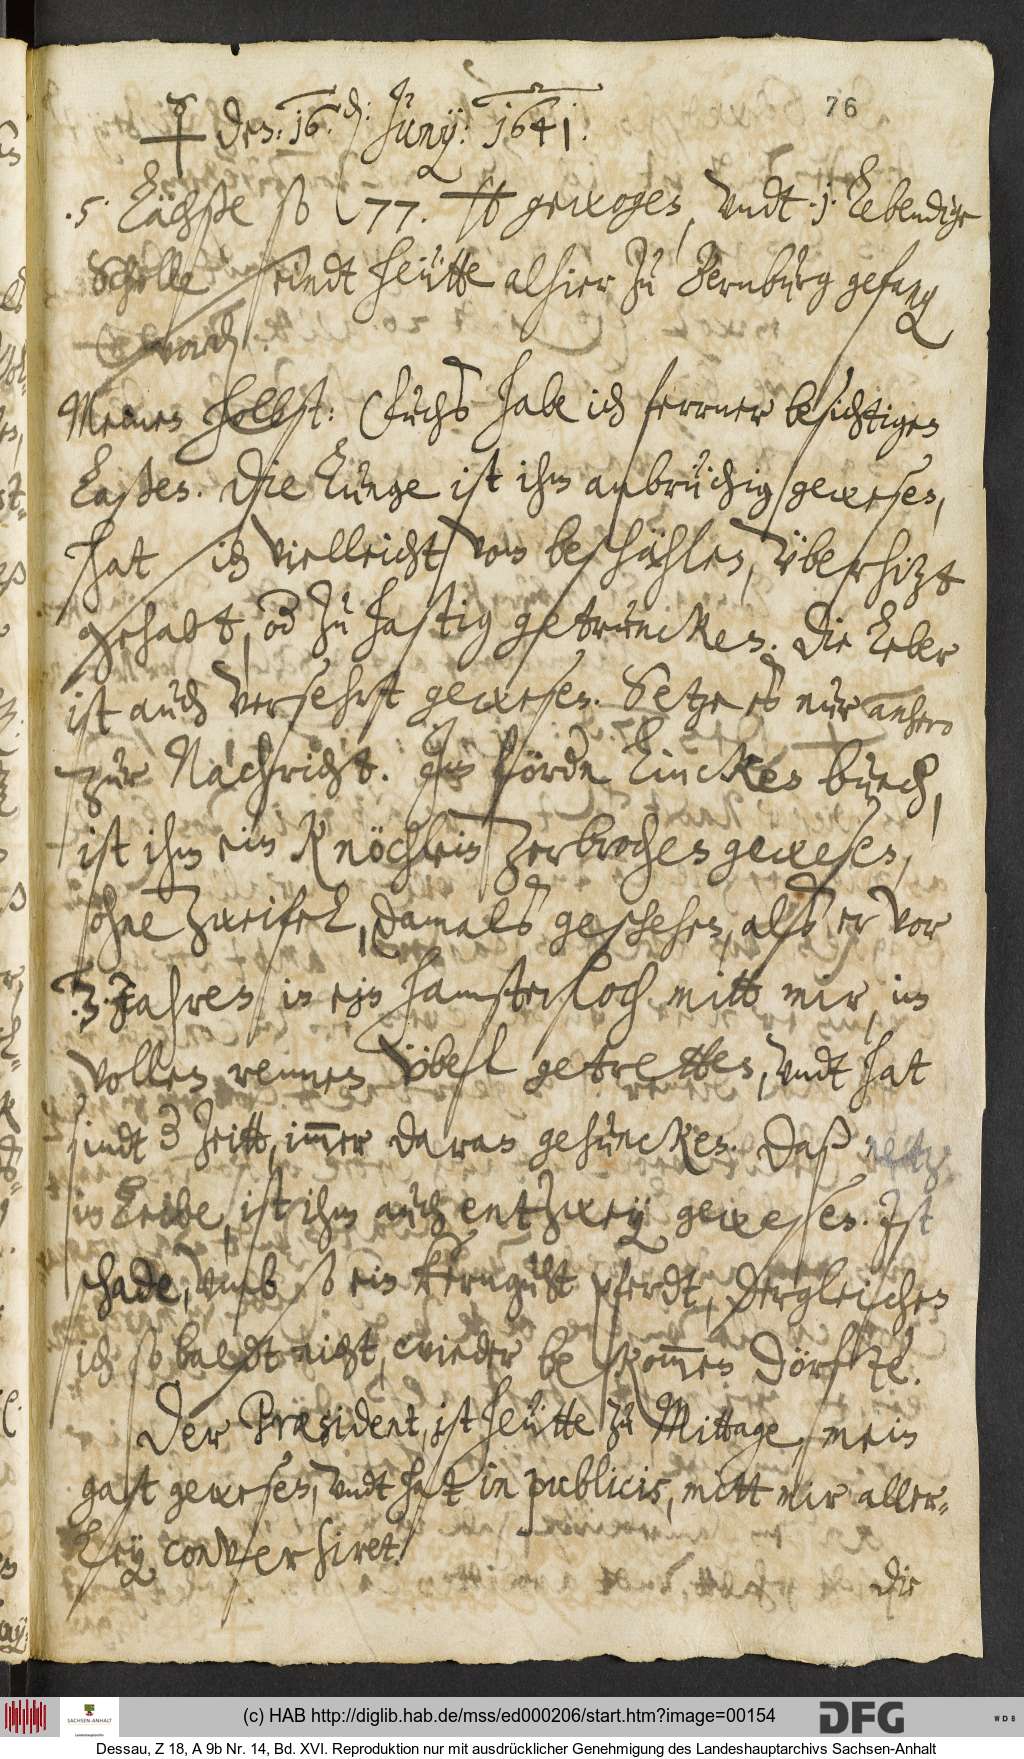 76
☿ den: 16. d: Junÿ: 1641.
.5. Lächße so 77. ℔ gewogen, undt .1. Lebendige
Scholle seindt heütte alhier zu Bernburg gefang
word.
Meinen Holst: Fuchß habe ich ferrner besichtigen
Laßen. Die Lunge ist ihm anbrüchig gewesen,
hat sich vielleicht vom beschählen, überhizt
gehabt, od zu hastig getruncken. Die Leber
ist auch versehrt gewesen. Setze es nur anhero
zur Nachricht. Im vördn Lincken buech,
ist ihm ein Knöchlein zerbrochen gewesen,
ohne zweifel, damalß geschehen, alß er vor
.3. Jahren in ein hamsterloch mitt mir, im
vollen rennen übel getretten, undt hat
sindt 3 Zeitt, immer daran gehuncken. Daß netz
im Leibe, ist ihm auch entzweÿ gewesen. Ist
schade, umb so ein kerngutt pferdt, dergleichen
ich so baldt nicht, wieder bekommen dörfte.
Der Præsident, ist heütte zu Mittage, mein
gast gewesen, undt hat in publicis, mitt mir aller-
Leÿ conversiret.
Die
(c) HAB http://diglib.hab.de/mss/ed000206/start.htm?image=00154
SACHSEN-ANHALT
DFG
WDB
Dessau, Z 18, A 9b Nr. 14, Bd. XVI. Reproduktion nur mit ausdrücklicher Genehmigung des Landeshauptarchivs Sachsen-Anhalt